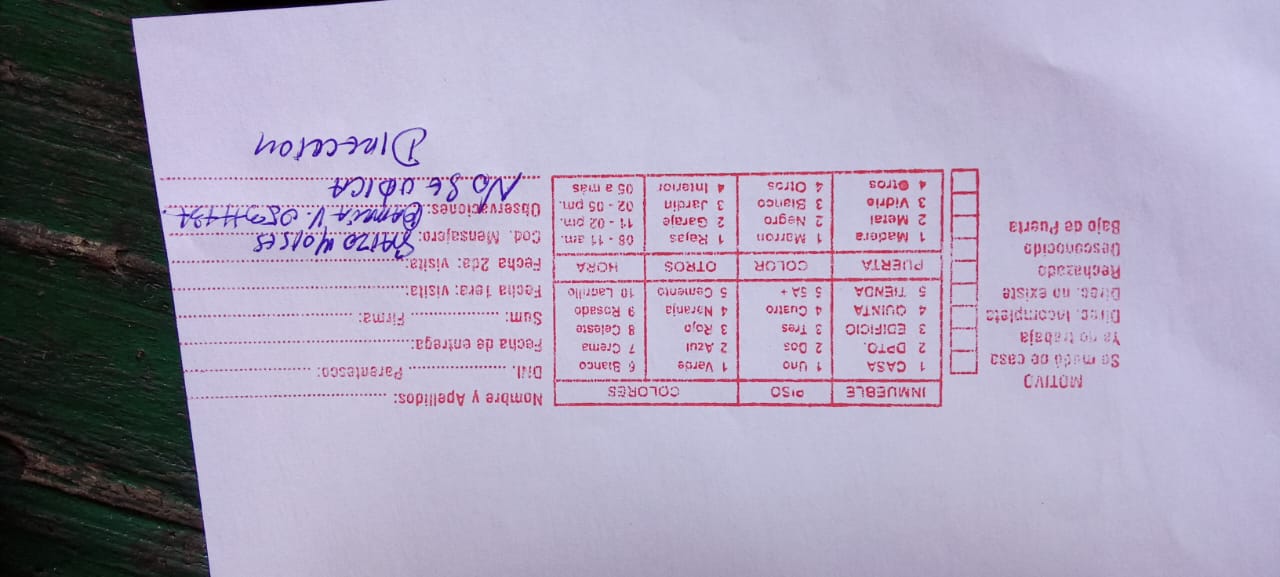 MOTIVO
Se mudó de casa
Ya no trabaja
Direc. Incompleta
Direc. no existe
Rechazado
Desconocido
Bajo de Puerta
INMUEBLE PISO COLORES
1 CASA 1 Uno 1 Verde 6 Blanco
2 DPTO. 2 Dos 2 Azul 7 Crema
3 EDIFICIO 3 Tres 3 Rojo 8 Celeste
4 QUINTA 4 Cuatro 4 Naranja 9 Rosado
5 TIENDA 5 5A + 5 Cemento 10 Ladrillo
PUERTA COLOR OTROS HORA
1 Madera 1 Marron 1 Rejas 08 - 11 am.
2 Metal 2 Negro 2 Garaje 11 - 02 pm.
3 Vidrio 3 Blanco 3 Jardin 02 - 05 pm.
4 Otros 4 Otros 4 Interior 05 a más
Nombre y Apellidos:
D/I. Parentesco:
Fecha de entrega:
Sum: Firma:
Fecha 1era: visita:
Fecha 2da: visita:
Cod. Mensajero:
Observaciones:
No Se UBICA
Direccion